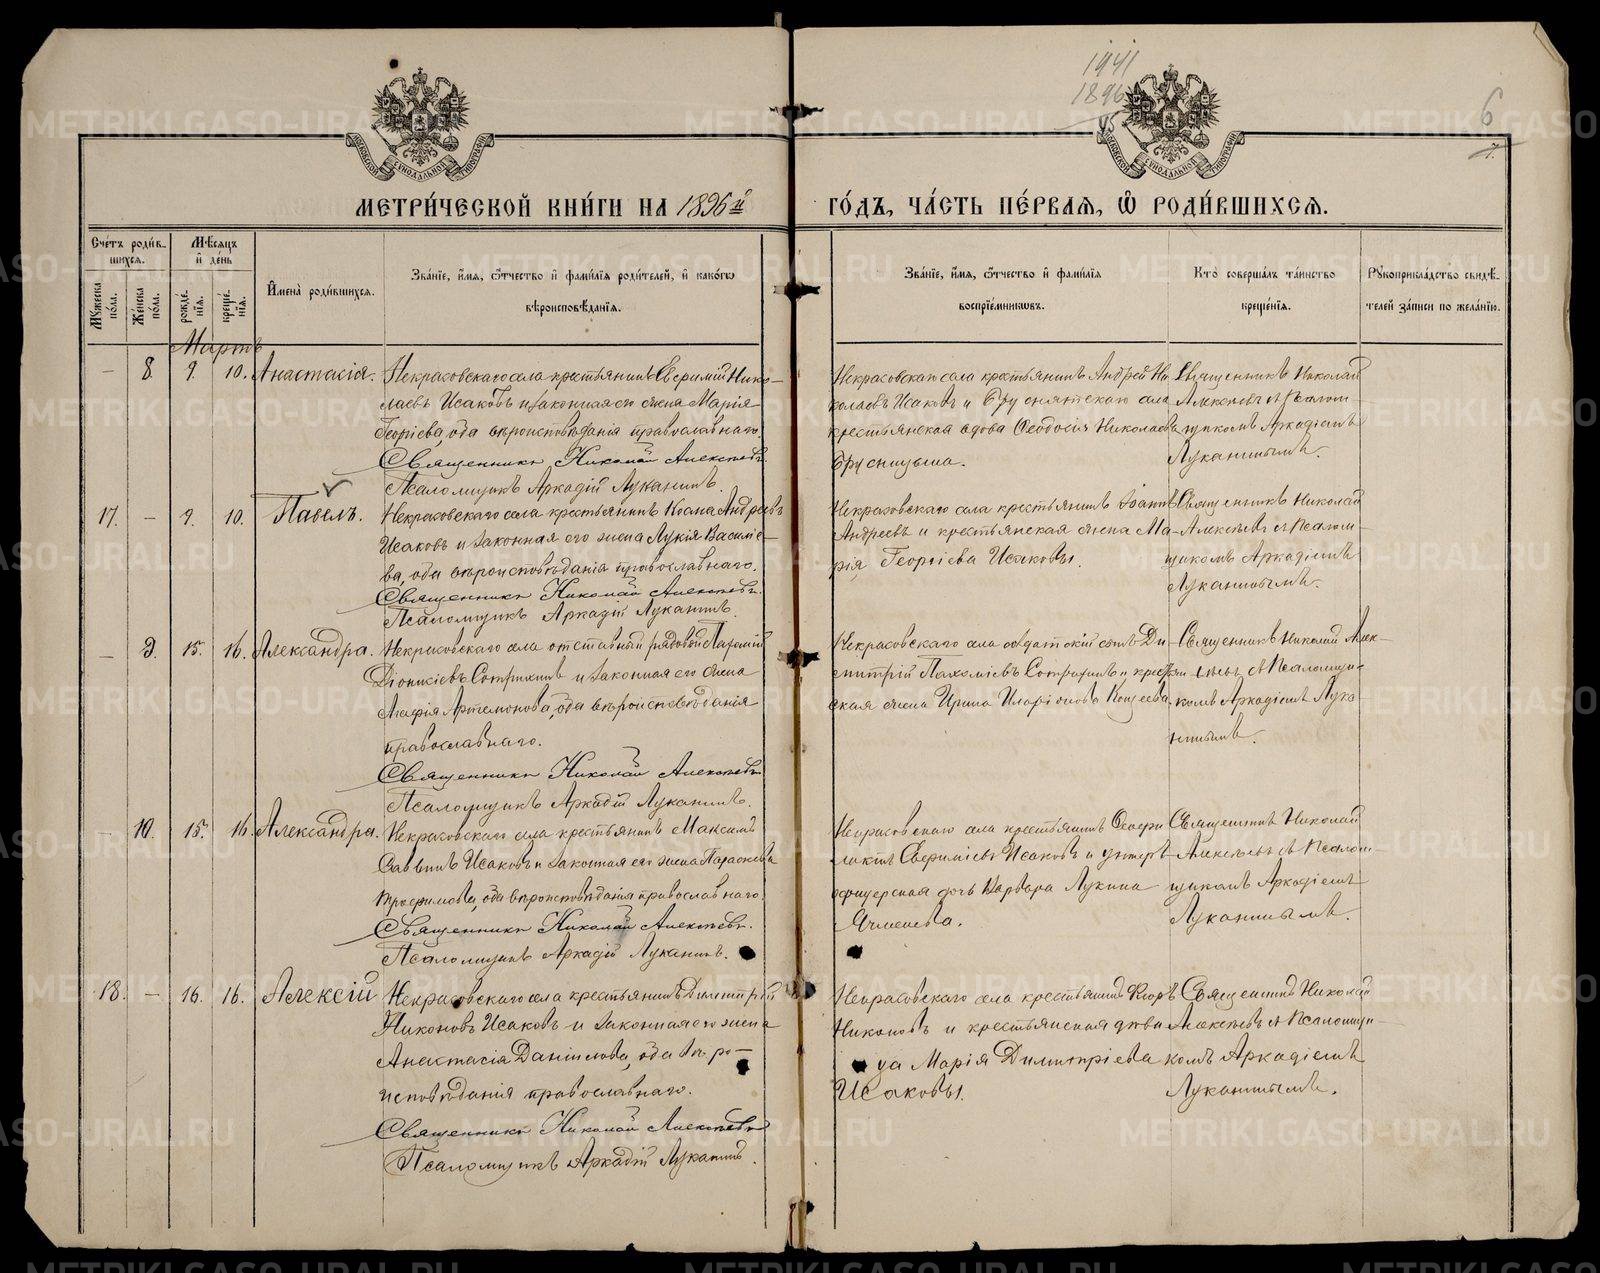 1941
1896
6
7.
МОСКОВСКОЙ СѴНОДАЛЬНОЙ ТИПОГРАФІИ
МОСКОВСКОЙ СѴНОДАЛЬНОЙ ТИПОГРАФІИ
МЕТРИ́ЧЕСКОЙ КНИ́ГИ НА 1896й ГО́ДЪ, ЧА́СТЬ ПЕ́РВАЯ, Ѽ РОДИ́ВШИХСЯ.
Сче́тъ роди́в-
шихся.
Му́жеска по́ла.
Же́нска по́ла.
Мѣ́сяцъ
и҆ де́нь
рожде́нїя.
креще́нїя.
И҆мена̀ роди́вшихся.
Зва́нїе, и҆́мя, ѻ҆́тчество и҆ фами́лїя роди́телей, и҆ како́гѡ
вѣроисповѣ́данїя.
Зва́нїе, и҆́мя, ѻ҆́тчество и҆ фами́лїя
воспрїе́мниковъ.
Кто̀ соверша́лъ та́инство
креще́нїя.
Рꙋкоприкла́дство свидѣ́-
телей за́писи по жела́нїю.
Мартъ
— 8. 9. 10. Анастасія.
Некрасовскаго села крестьянинъ Евѳимій Нико-
лаевъ Исаковъ и законная его жена Марія
Георгіева, оба вѣроисповѣданія православнаго.
Священникъ Николай Алексѣевъ.
Псаломщикъ Аркадій Луканинъ.
Некрасовскаго села крестьянинъ Андрей Ни-
колаевъ Исаковъ и Бруснятскаго села
крестьянская вдова Ѳеодосія Николаева
Брусницына.
Священникъ Николай
Алексѣевъ съ Псалом-
щикомъ Аркадіемъ
Луканинымъ.
17. — 9. 10. Павелъ.
Некрасовскаго села крестьянинъ Іоаннъ Андреевъ
Исаковъ и законная его жена Лукія Василіе-
ва, оба вѣроисповѣданія православнаго.
Священникъ Николай Алексѣевъ.
Псаломщикъ Аркадій Луканинъ.
Некрасовскаго села крестьянинъ Іоаннъ
Андреевъ и крестьянская жена Ма-
рія Георгіева Исаковы.
Священникъ Николай
Алексѣевъ съ Псалом-
щикомъ Аркадіемъ
Луканинымъ.
— 9. 15. 16. Александра.
Некрасовскаго села отставный рядовой Пахомій
Діонисіевъ и законная его жена
Агафія Артемонова, оба вѣроисповѣданія
православнаго.
Священникъ Николай Алексѣевъ.
Псаломщикъ Аркадій Луканинъ.
Некрасовскаго села солдатскій сынъ Ди-
митрій Пахоміевъ и крестьян-
ская жена Ирина Иларіонова
Священникъ Николай Алек-
сѣевъ съ Псаломщи-
комъ Аркадіемъ Лука-
нинымъ.
— 10. 15. 16. Александра.
Некрасовскаго села крестьянинъ Максимъ
Саввинъ Исаковъ и законная его жена Параскева
Трофимова, оба вѣроисповѣданія православнаго.
Священникъ Николай Алексѣевъ.
Псаломщикъ Аркадій Луканинъ.
Некрасовскаго села крестьянинъ
Евѳиміевъ Исаковъ и унтеръ-
офицерская дочь Варвара Лукина
Ячменева.
Священникъ Николай
Алексѣевъ съ Псалом-
щикомъ Аркадіемъ
Луканинымъ.
18. — 16. 16. Алексій
Некрасовскаго села крестьянинъ Димитрій
Никоновъ Исаковъ и законная его жена
Анастасія Даніилова, оба вѣро-
исповѣданія православнаго.
Священникъ Николай Алексѣевъ
Псаломщикъ Аркадій Луканинъ.
Некрасовскаго села крестьянинъ
Никоновъ и крестьянская дѣви-
ца Марія Димитріева
Исаковы.
Священникъ Николай
Алексѣевъ съ Псаломщи-
комъ Аркадіемъ
Луканинымъ.
METRIKI.GASO-URAL.RU